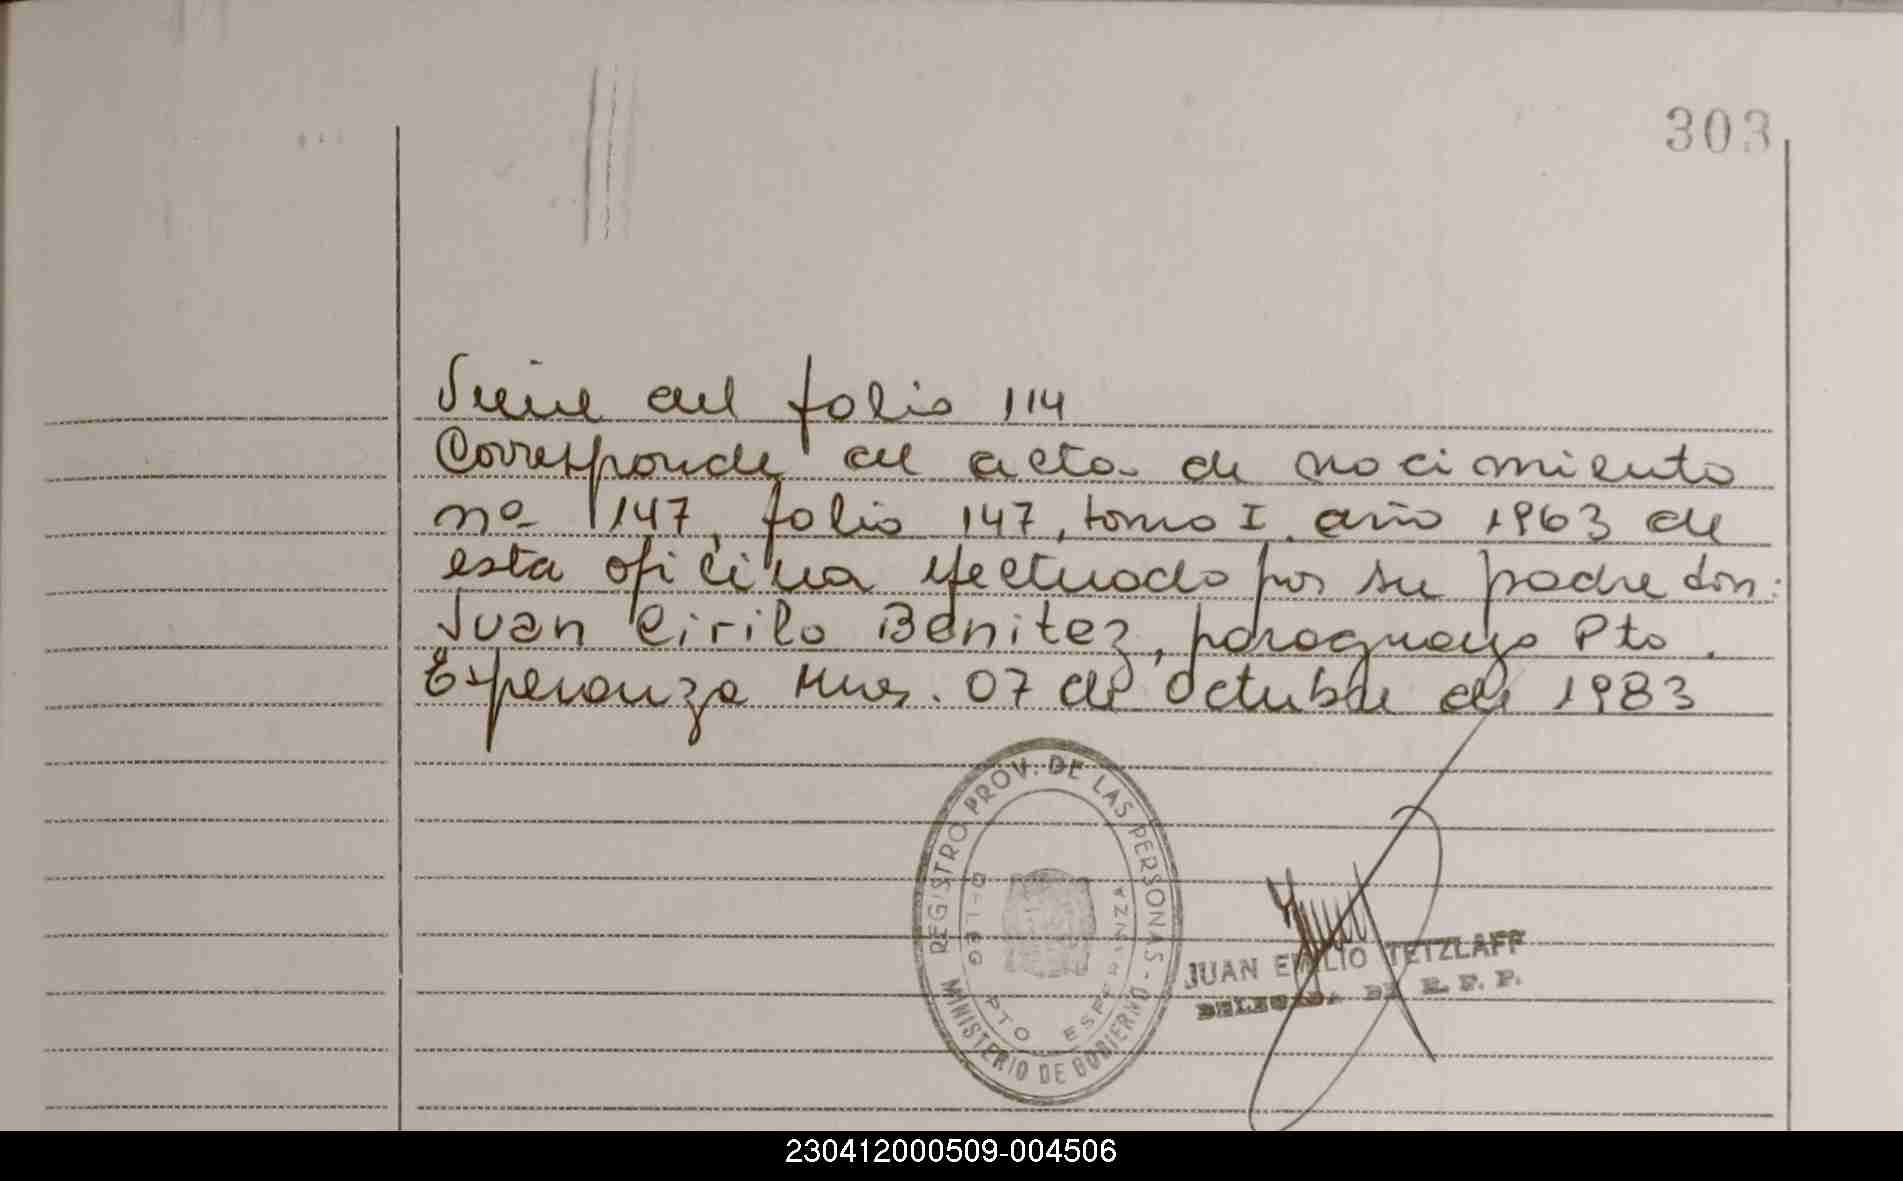 303
Viene del folio 114
Corresponde al acta de nacimiento
nº 147, folio 147, tomo I. año 1963 de
esta oficina efectuado por su padre don:
Juan Cirilo Benitez, paraguayo Pto.
Esperanza Mnes. 07 de octubre de 1983
REGISTRO PROV. DE LAS PERSONAS - MINISTERIO DE GOBIERNO
DELEG PTO ESPERANZA
JUAN EMILIO TETZLAFF
DELEGADA DE R. P. P.
230412000509-004506